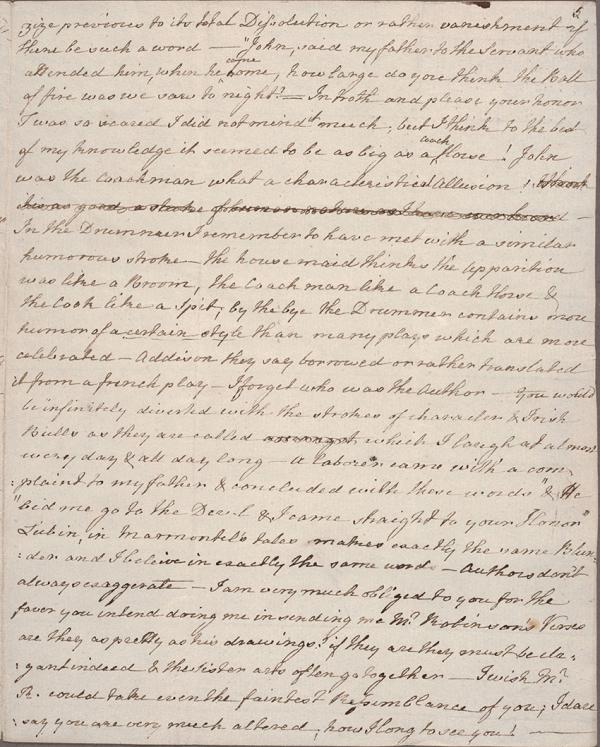 5
size previous to its total Dissolution or rather vanishment if
there be such a word — "John, said my father to the Servant who
attended him, when he came home, how large do you think the Ball
of fire was we saw to night? — In troth and please your honor
I was so scared I did not mind it much, but I think to the best
of my knowledge it seemed to be as big as a coach Horse! John
was the Coachman what a characteristical Allusion! I think
this as good a stroke of human nature as I have ever heard —
In the Drummer I remember to have met with a similar
humorous stroke — the house maid thinks the Apparition
was like a Broom, the Coach man like a Coach Horse &
the Cook like a Spit; by the bye the Drummer contains more
humor of a certain style than many plays which are more
celebrated — Addison they say borrowed or rather translated
it from a french play — I forget who was the Author — You would
be infinitely diverted with the strokes of character & Irish
Bulls as they are called amongst which I laugh at almost
every day & all day long — A laborer came with a com
:plaint to my father & concluded with these words "& He
"bid me go to the Devil & I came straight to your Honor"
Lubin, in Marmontel's tales makes exactly the same Blun
:der and I beleive in exactly the same words — Authors don't
always exaggerate — I am very much obliged to you for the
favor you intend doing me in sending me Mr. Robinson's Verses
are they as pretty as his drawings? if they are they must be ele
:gant indeed & the Sister arts often go together — I wish Mr.
R. could take even the faintest Resemblance of you; I dare
say you are very much altered, how I long to see you! —